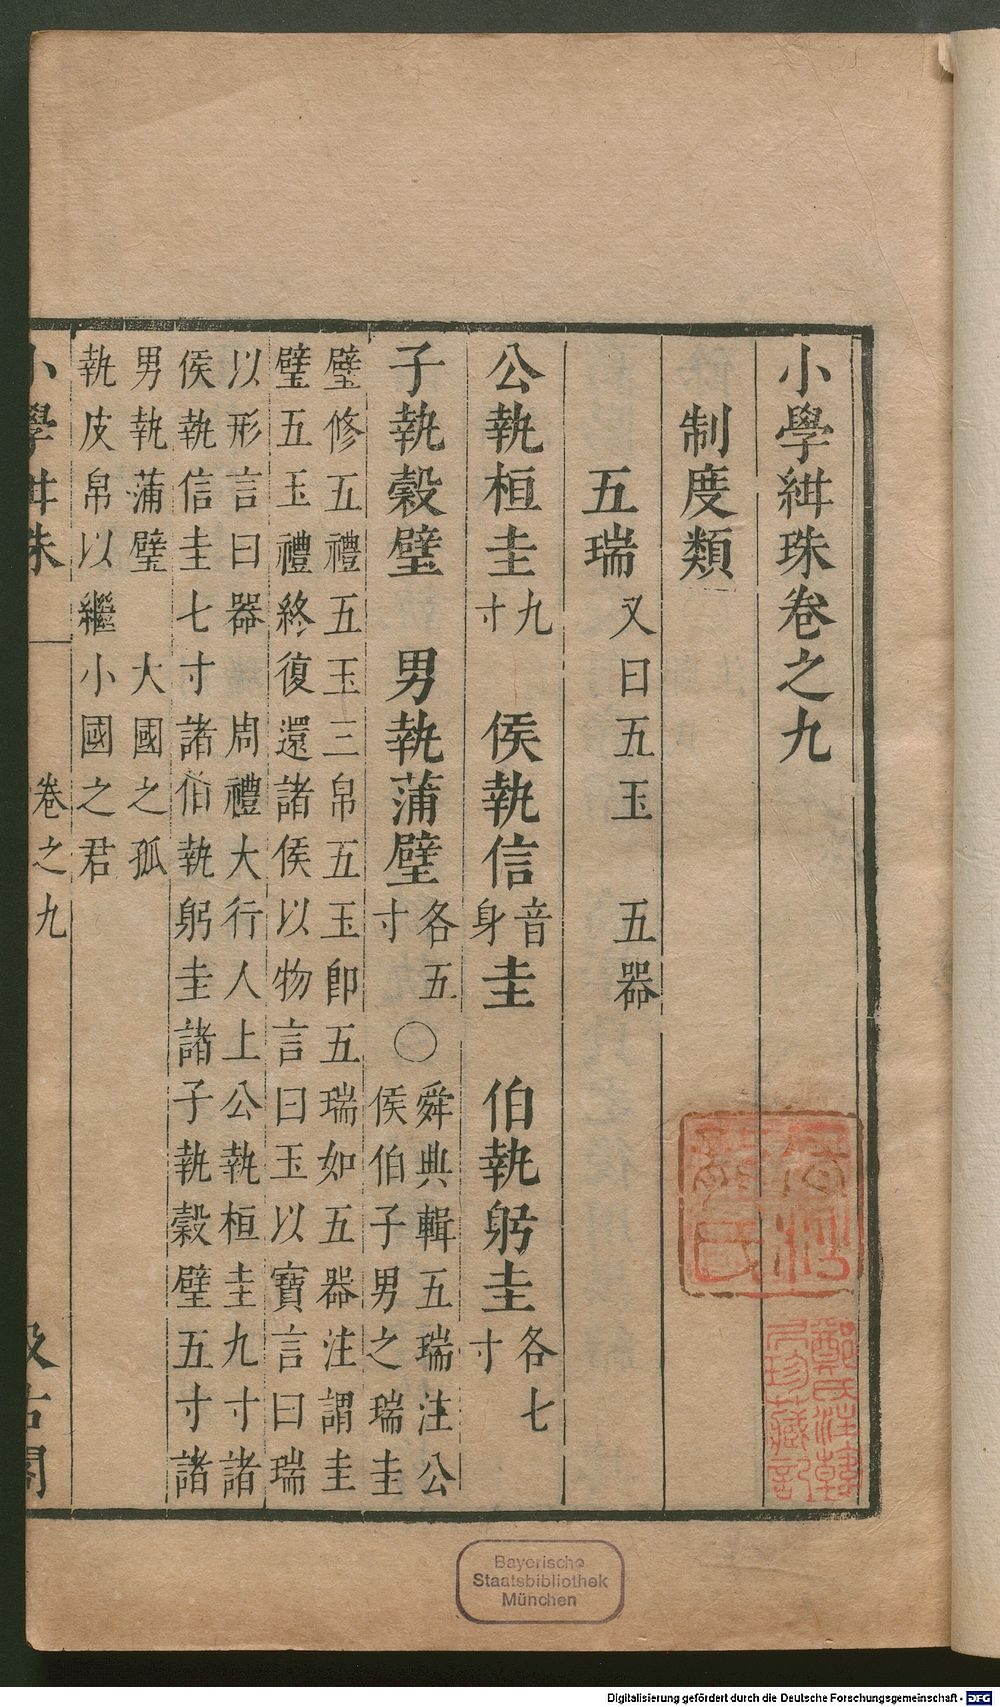 小學紺珠卷之九
制度類
五瑞又曰五玉　五器
公執桓圭九寸　侯執信音身圭　伯執躬圭各七寸
子執穀璧　男執蒲璧各五寸〇舜典輯五瑞注公侯伯子男之瑞圭
璧修五禮五玉三帛五玉卽五瑞如五器注謂圭
璧五玉禮終復還諸侯以物言曰玉以寶言曰瑞
以形言曰器　周禮大行人上公執桓圭九寸諸
侯執信圭七寸諸伯執躬圭諸子執穀璧五寸諸
男執蒲璧　大國之孤
執皮帛以繼小國之君
小學紺珠　卷之九　汲古閣
鄭氏注韓
居珍藏記
Bayerische
Staatsbibliothek
München
Digitalisierung gefördert durch die Deutsche Forschungsgemeinschaft - DFG